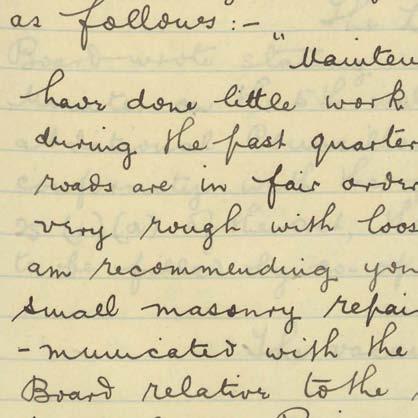 as follows:-
"Mainten
have done little work
during the past quarter
roads are in fair order
very rough with loos
am recommending you
small masonry repai
-municated with the
Board relative to the